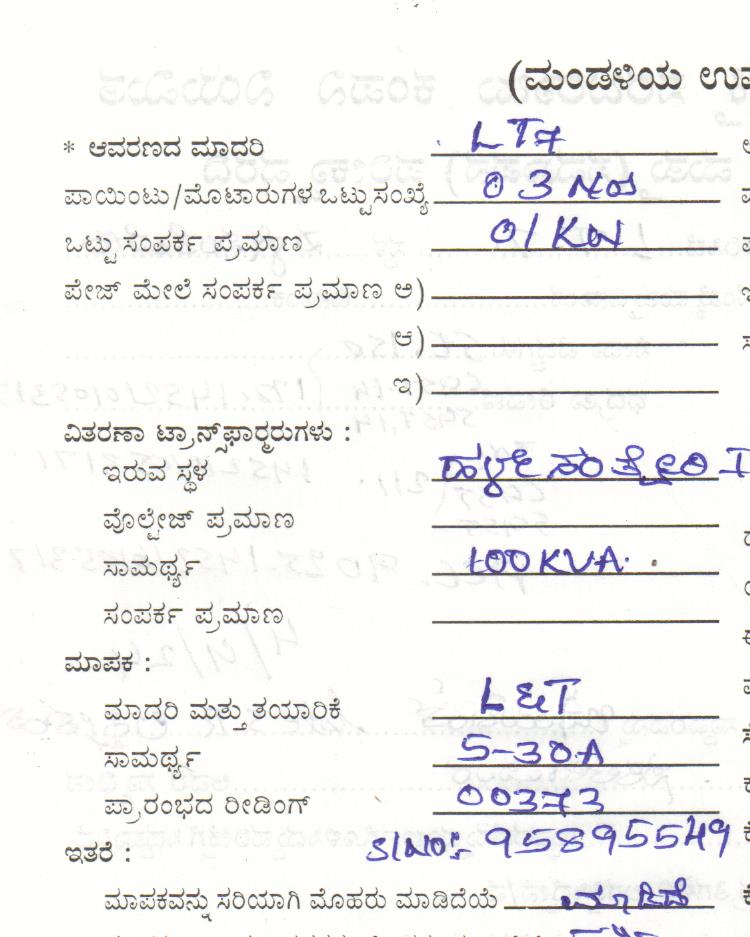 (ಮಂಡಳಿಯ ಉಪ
* ಆವರಣದ ಮಾದರಿ LT7
ಪಾಯಿಂಟು/ಮೊಟಾರುಗಳ ಒಟ್ಟು ಸಂಖ್ಯೆ 03 Nos
ಒಟ್ಟು ಸಂಪರ್ಕ ಪ್ರಮಾಣ 01 KW
ಪೇಜ್ ಮೇಲೆ ಸಂಪರ್ಕ ಪ್ರಮಾಣ ಅ)
ಆ)
ಇ)
ವಿತರಣಾ ಟ್ರಾನ್ಸ್‌ಫಾರ್ಮರುಗಳು :
ಇರುವ ಸ್ಥಳ
ವೊಲ್ಟೇಜ್ ಪ್ರಮಾಣ
ಸಾಮರ್ಥ್ಯ 100 KVA.
ಸಂಪರ್ಕ ಪ್ರಮಾಣ
ಮಾಪಕ :
ಮಾದರಿ ಮತ್ತು ತಯಾರಿಕೆ L&T
ಸಾಮರ್ಥ್ಯ 5-30A
ಪ್ರಾರಂಭದ ರೀಡಿಂಗ್ 00373
ಇತರೆ : Sl NO:- 95895549
ಮಾಪಕವನ್ನು ಸರಿಯಾಗಿ ಮೊಹರು ಮಾಡಿದೆಯೆ ಮಾಡಿದೆ